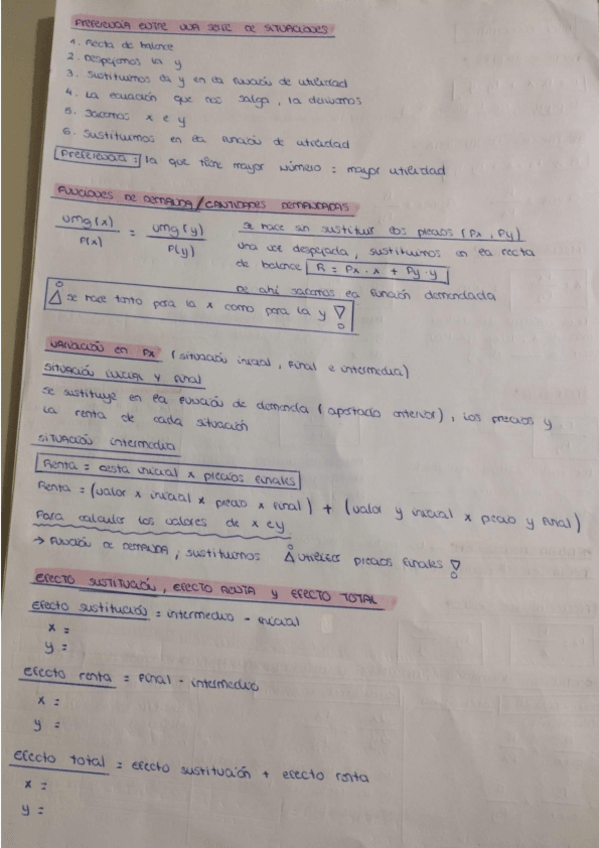 PREFERENCIA ENTRE UNA SERIE DE SITUACIONES
1. Recta de balance
2. Despejamos la y
3. Sustituimos la y en la función de utilidad
4. La ecuación que nos salga, la derivamos
5. Sacamos x e y
6. Sustituimos en la función de utilidad
Preferencia: la que tiene mayor número = mayor utilidad
FUNCIONES DE DEMANDA / CANTIDADES DEMANDADAS
Umg(x) / P(x) = Umg(y) / P(y)
Se hace sin sustituir los precios (Px, Py)
Una vez despejada, sustituimos en la recta
de balance R = Px · x + Py · y
De ahí sacamos la función demandada
¡Se hace tanto para la x como para la y!
VARIACIÓN EN Px (situación inicial, final e intermedia)
SITUACIÓN INICIAL Y FINAL
Se sustituye en la función de demanda (apartado anterior), los precios y
la renta de cada situación
SITUACIÓN intermedia
Renta = cesta inicial x precios finales
Renta = (valor x inicial x precio x final) + (valor y inicial x precio y final)
Para calcular los valores de x e y
→ FUNCIÓN DE DEMANDA, sustituimos ¡UTILIZAR precios finales!
EFECTO SUSTITUCIÓN, EFECTO RENTA Y EFECTO TOTAL
Efecto sustitución = intermedio - inicial
x =
y =
Efecto renta = Final - intermedio
x =
y =
Efecto total = efecto sustitución + efecto renta
x =
y =